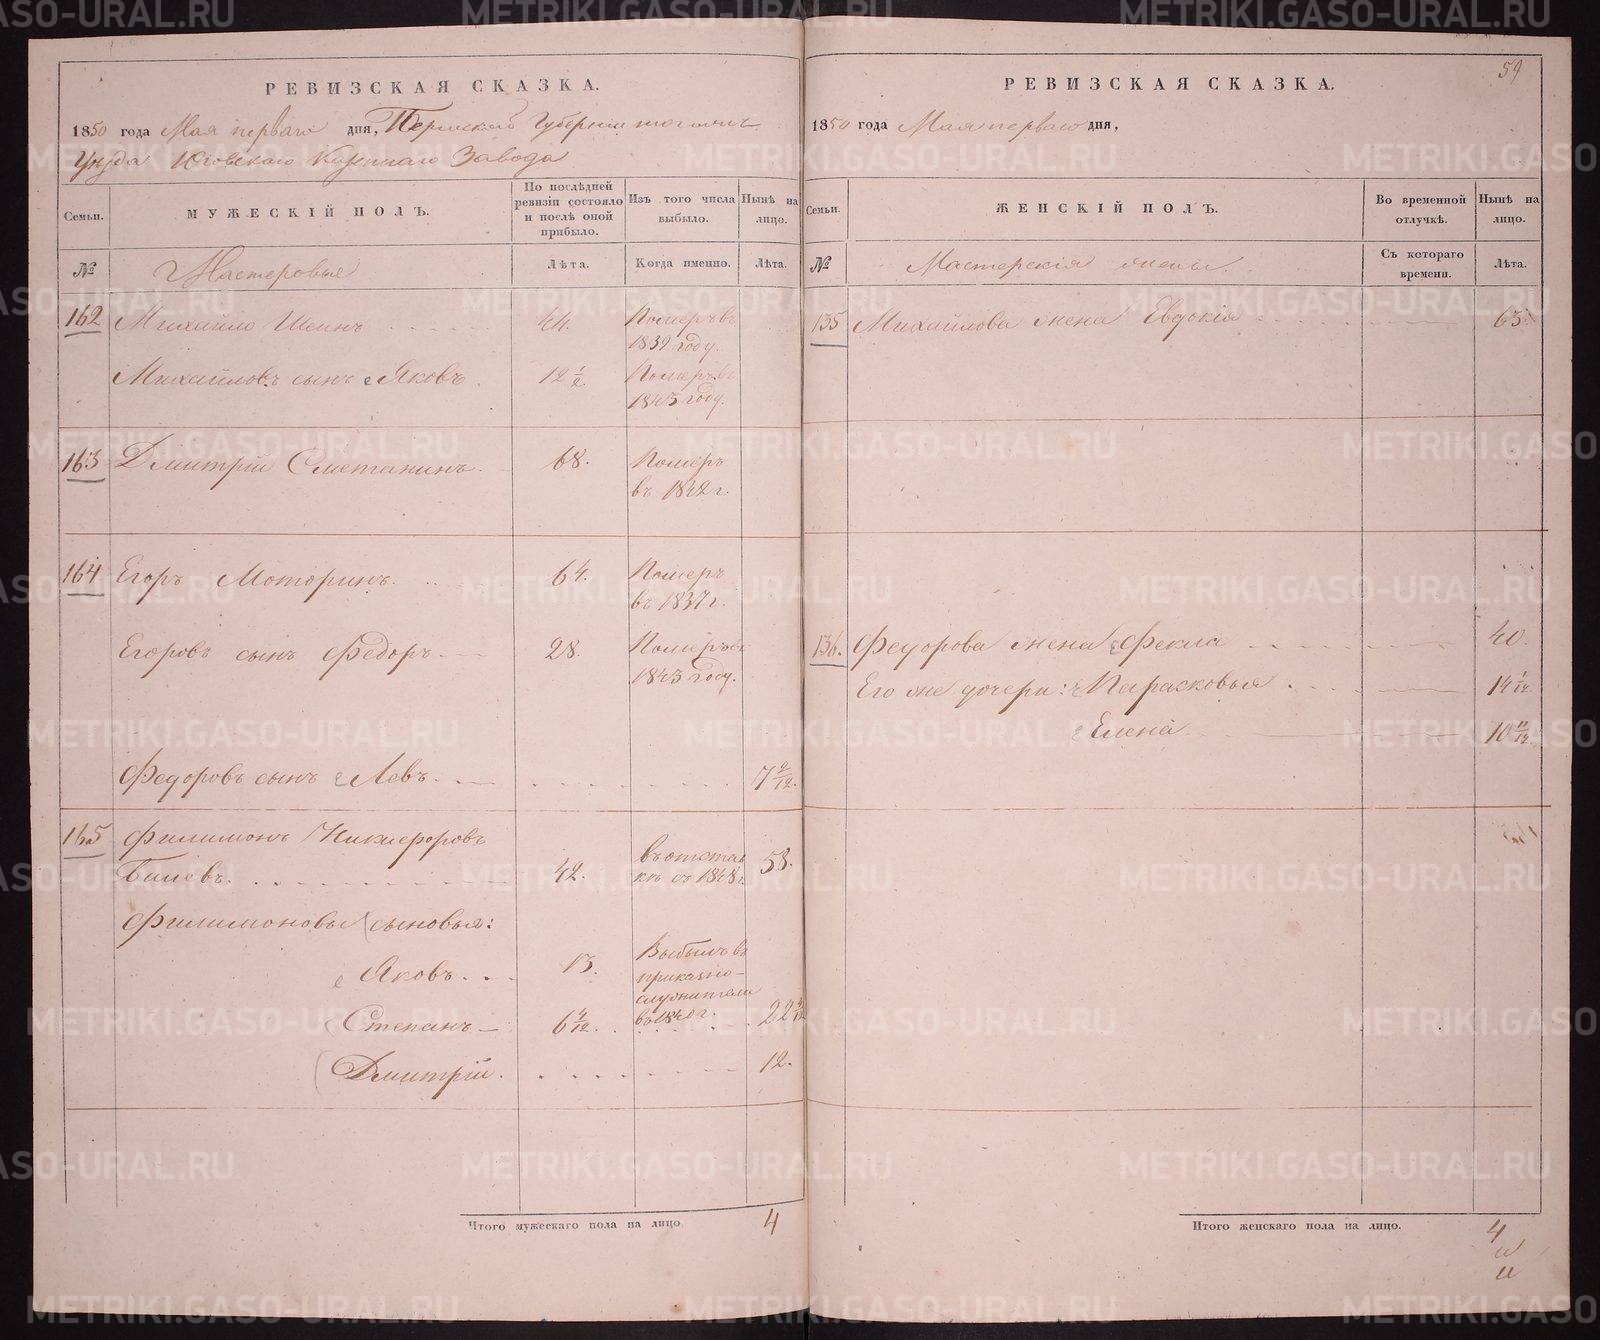 РЕВИЗСКАЯ СКАЗКА.
1850 года Мая перваго дня, Пермской Губернии тогожъ
Уезда Юговскаго Казеннаго Завода
Семьи.
МУЖЕСКІЙ ПОЛЪ.
По послѣдней ревизіи состояло и послѣ оной прибыло.
Изъ того числа выбыло.
Нынѣ на лицо.
№
Мастеровые
Лѣта.
Когда именно.
Лѣта.
162 Михайло Шеинъ 44. Померъ въ 1839 году.
Михайловъ сынъ Яковъ. 12 1/2 Померъ въ 1843 году.
163 Дмитрій Сметанинъ. 68. Померъ въ 1842 г.
164 Егоръ Моторинъ. 64. Померъ въ 1837 г.
Егоровъ сынъ Федоръ. 28. Померъ въ 1843 году.
Федоровъ сынъ Левъ. 7 2/12.
165 Филимонъ Никифоровъ
Билевъ. 42. въ отставкѣ съ 1848 г. 58.
Филимоновы сыновья:
Яковъ. 13. Выбылъ въ приказно-служители въ 1840 г.
Степанъ 6 4/12. 22 4/12
Дмитрій. 12.
Итого мужескаго пола на лицо 4
59
РЕВИЗСКАЯ СКАЗКА.
1850 года Мая перваго дня,
Семьи.
ЖЕНСКІЙ ПОЛЪ.
Во временной отлучкѣ.
Нынѣ на лицо.
№
Мастерскія жены.
Съ котораго времени.
Лѣта.
135 Михайлова жена Евдокія 63.
136. Федорова жена Фекла 40.
Его же дочери: Парасковья 14 1/12
Елена 10 11/12
Итого женскаго пола на лицо. 4
METRIKI.GASO-URAL.RU